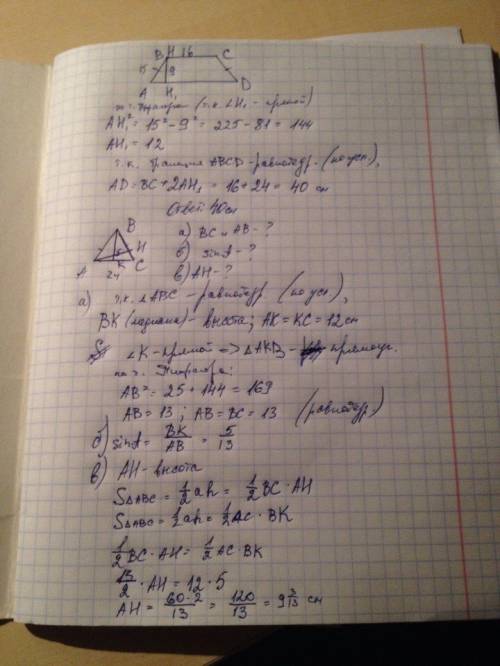 B H 16 C
15 9
A H₁ D
по т. Пифагора (т.к. ∠H₁ - прямой)
AH₁² = 15² - 9² = 225 - 81 = 144
AH₁ = 12
т.к. трапеция ABCD - равнобедр. (по усл),
AD = BC + 2AH₁ = 16 + 24 = 40 см
Ответ: 40 см
B а) BC и AB - ?
5 H б) sin A - ?
A 24 K C в) AH - ?
а) т.к. △ABC - равнобедр. (по усл),
BK (медиана) - высота; AK = KC = 12 см
∠K - прямой => △AKB - прямоуг.
по т. Пифагора:
AB² = 25 + 144 = 169
AB = 13; AB = BC = 13 (равнобедр)
б) sin A = BK/AB = 5/13
в) AH - высота
S△ABC = 1/2 ah = 1/2 BC · AH
S△ABC = 1/2 ah = 1/2 AC · BK
1/2 BC · AH = 1/2 AC · BK
13/2 · AH = 12 · 5
AH = 60·2/13 = 120/13 = 9 3/13 см